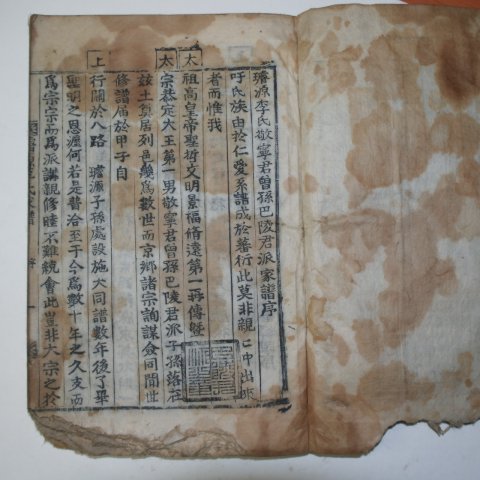 璿源李氏敬寧君曾孫巴陵君派家譜序
吁氏族由於仁愛系譜成於蕃衍此莫非親親中出來
者而惟我
太
祖高皇帝聖哲文明景福脩遠第一再傳曁
太
宗恭定大王第一男敬寧君曾孫巴陵君派子孫落在
玆土奠居列邑奧爲數世而京鄉諸宗詢謀僉同閒世
修譜屆於甲子自
上
行關於八路 璿源子孫處設施大同譜數年後了畢
聖明之恩渥何若是普洽至于今爲數十年之久支而
爲宗宗而爲派講親修睦不難統會此豈非大宗之於
序
一